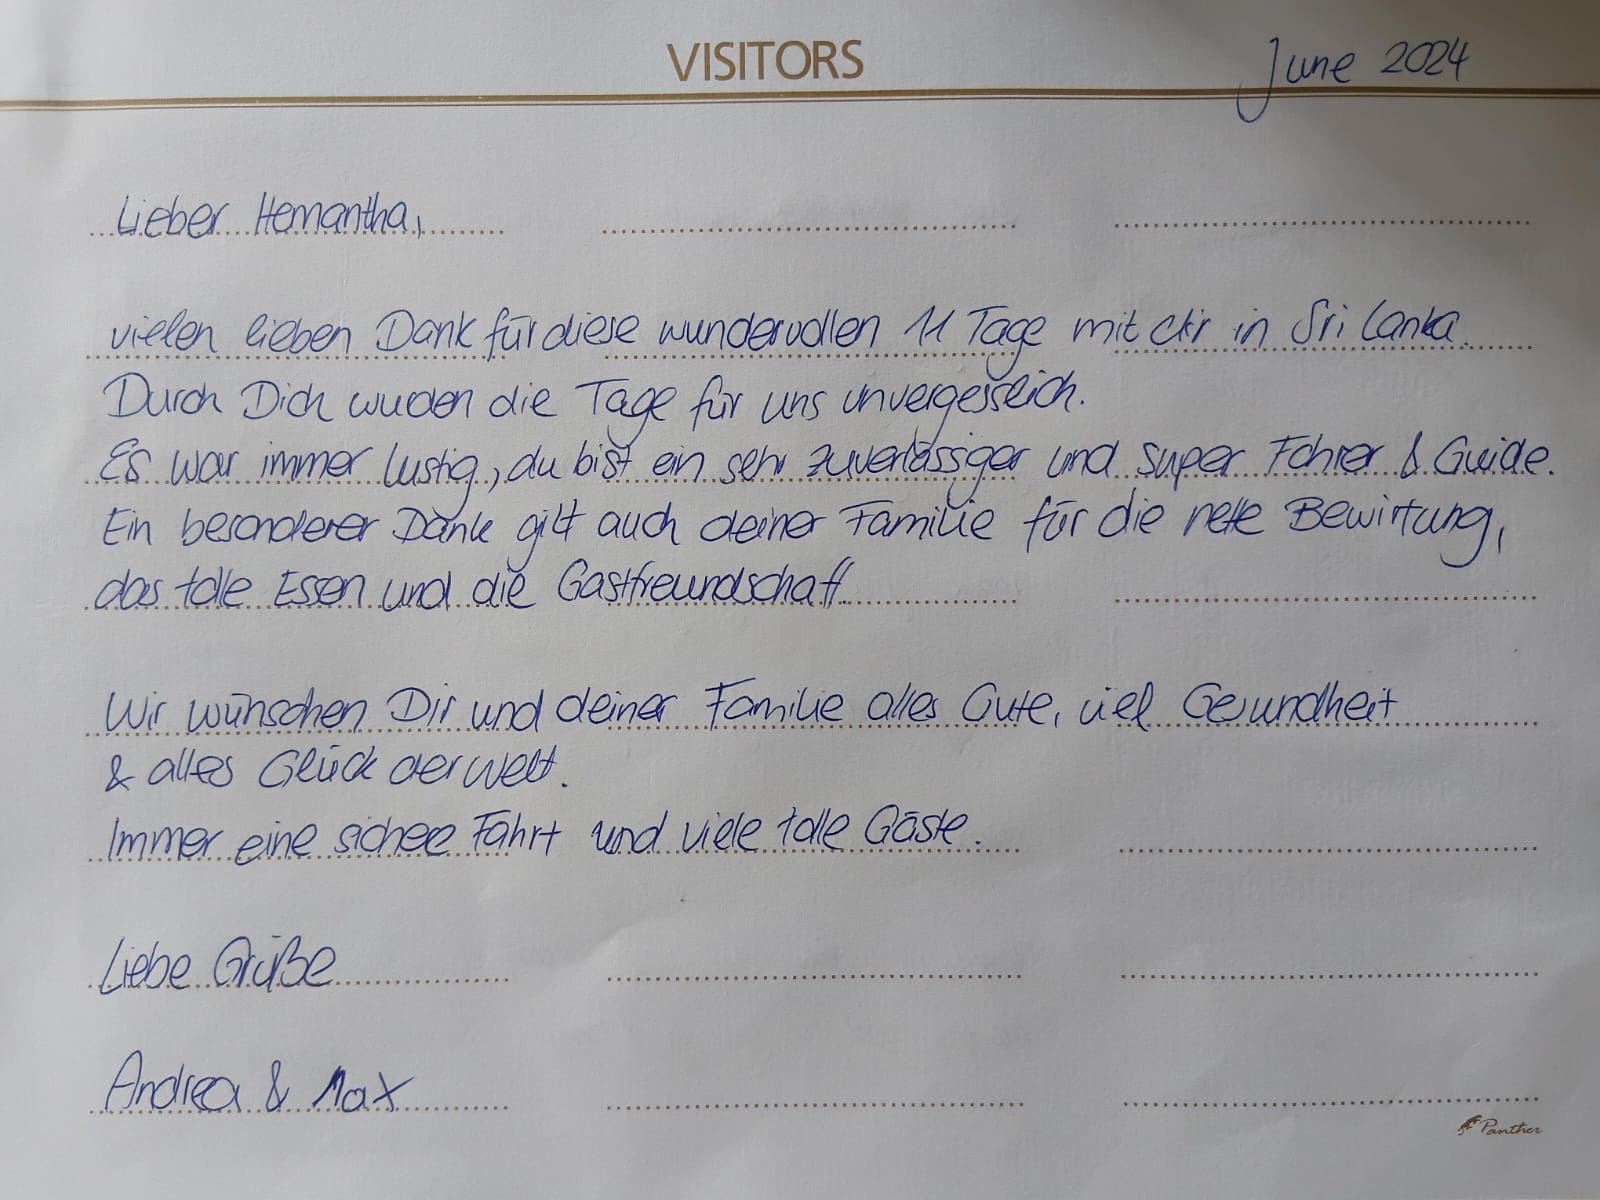 VISITORS
June 2024
Lieber Hemantha,
vielen lieben Dank für diese wundervollen 11 Tage mit dir in Sri Lanka.
Durch Dich wurden die Tage für uns unvergesslich.
Es war immer lustig, du bist ein sehr zuverlässiger und super Fahrer & Guide.
Ein besonderer Dank gilt auch deiner Familie für die nette Bewirtung,
das tolle Essen und die Gastfreundschaft.
Wir wünschen Dir und deiner Familie alles Gute, viel Gesundheit
& alles Glück der Welt.
Immer eine sichere Fahrt und viele tolle Gäste.
Liebe Grüße
Andrea & Max
Panther